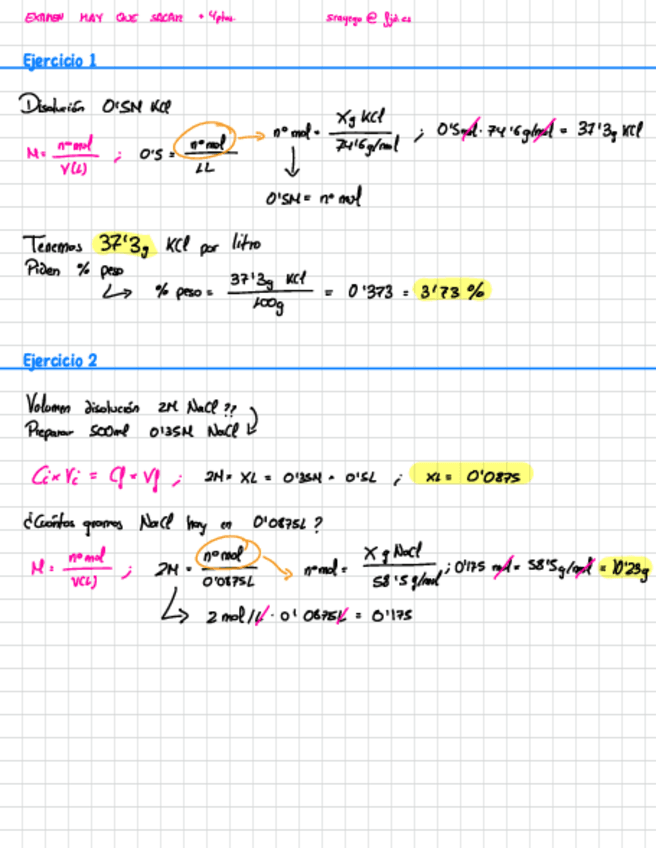 EXAMEN HAY QUE SACAR + 4ptos. srayego @ fjd.es
Ejercicio 1
Disolución 0'5M KCl
M = nº mol / V(L) ; 0'5 = nº mol / 1L → nº mol = Xg KCl / 74'6g/mol ; 0'5mol · 74'6g/mol = 37'3g KCl
0'5M = nº mol
Tenemos 37'3g KCl por litro
Piden % peso
% peso = 37'3g KCl / 100g = 0'373 = 3'73 %
Ejercicio 2
Volumen disolución 2M NaCl ??
Preparar 500ml 0'35M NaCl
Ci × Vi = Cf × Vf ; 2M × XL = 0'35M × 0'5L ; XL = 0'0875
¿Cuántos gramos NaCl hay en 0'0875L ?
M = nº mol / V(L) ; 2M = nº mol / 0'0875L → nº mol = X g NaCl / 58'5g/mol ; 0'175 mol = 58'5g/mol = 10'23g
2 mol/L · 0'0875L = 0'175